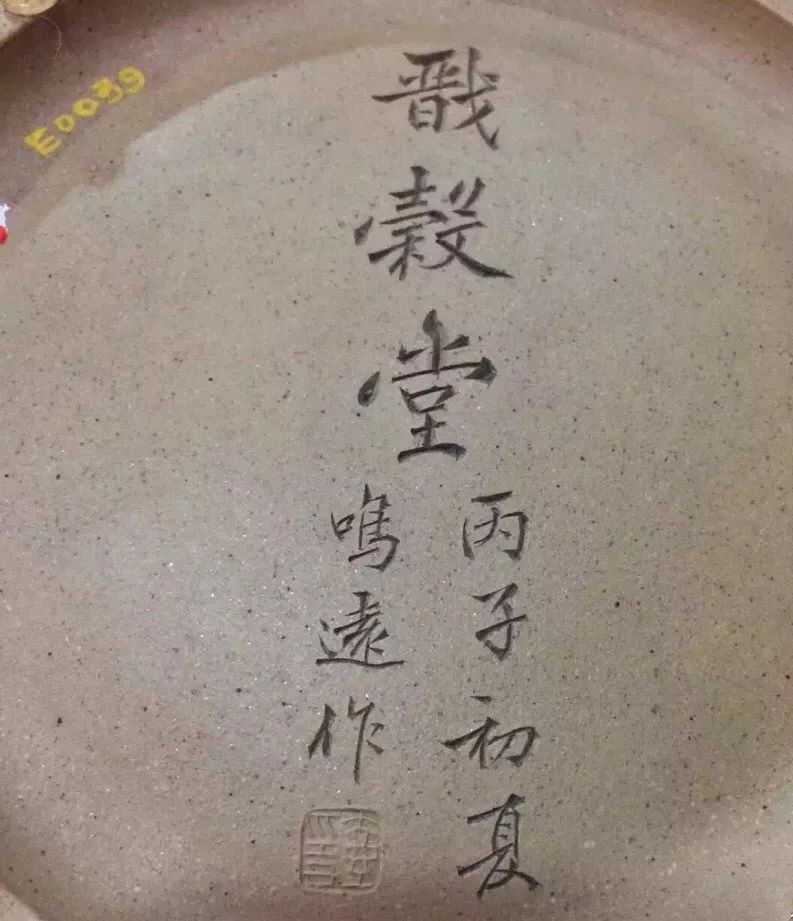 E0039
戬穀堂
丙子初夏
鳴遠作